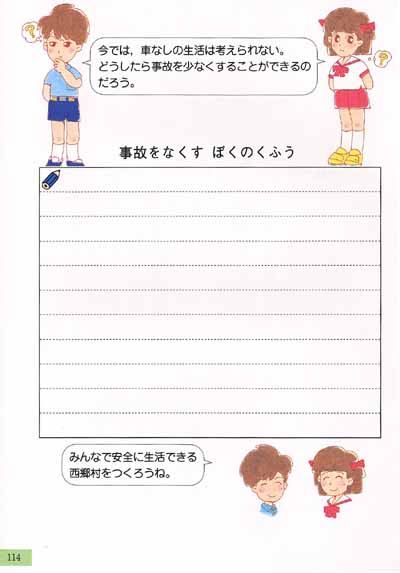 ?
?
今では，車なしの生活は考えられない。
どうしたら事故を少なくすることができるの
だろう。
事故をなくす ぼくのくふう
みんなで安全に生活できる
西郷村をつくろうね。
114